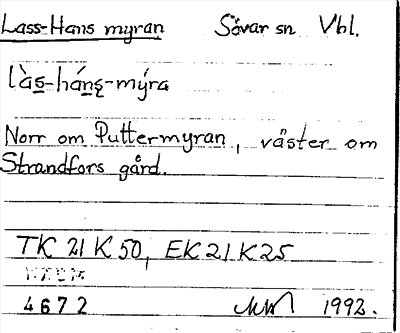 Lass-Hans myran Sävar sn Vbl.
làs-háns-mýra
Norr om Puttermyran, väster om
Strandfors gård.
TK 21 K 50, EK 21 K 25
4672 1992.